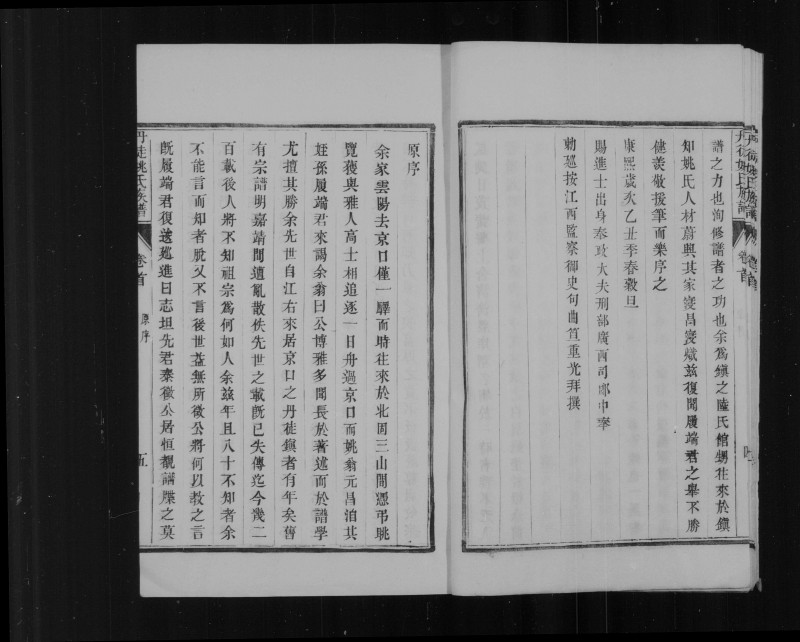 譜之力也洵修譜者之功也余爲鎮之陸氏館甥往來於鎮
知姚氏人材蔚興其家寖昌寖熾茲復聞履端君之舉不勝
健羨敬援筆而樂序之
康熙歲次乙丑季春穀旦
賜進士出身奉政大夫刑部廣西司郎中奉
勅巡按江西監察御史句曲笪重光拜撰
原序
余家雲陽去京口僅一驛而時往來於北固三山間憑弔眺
覽獲與雅人高士相追逐一日舟過京口而姚翁元昌洎其
姪孫履端君來謁余翁曰公博雅多聞長於著述而於譜學
尤擅其勝余先世自江右來居京口之丹徒鎮者有年矣舊
有宗譜明嘉靖間遭亂散佚先世之載既已失傳迄今幾二
百載後人將不知祖宗爲何如人余茲年且八十不知者余
不能言而知者脫又不言後世益無所徵公將何以教之言
既履端君復逡廵進曰志坦先君秦徵公居恒覩譜牒之莫
丹徒姚氏族譜
卷首
原序
五